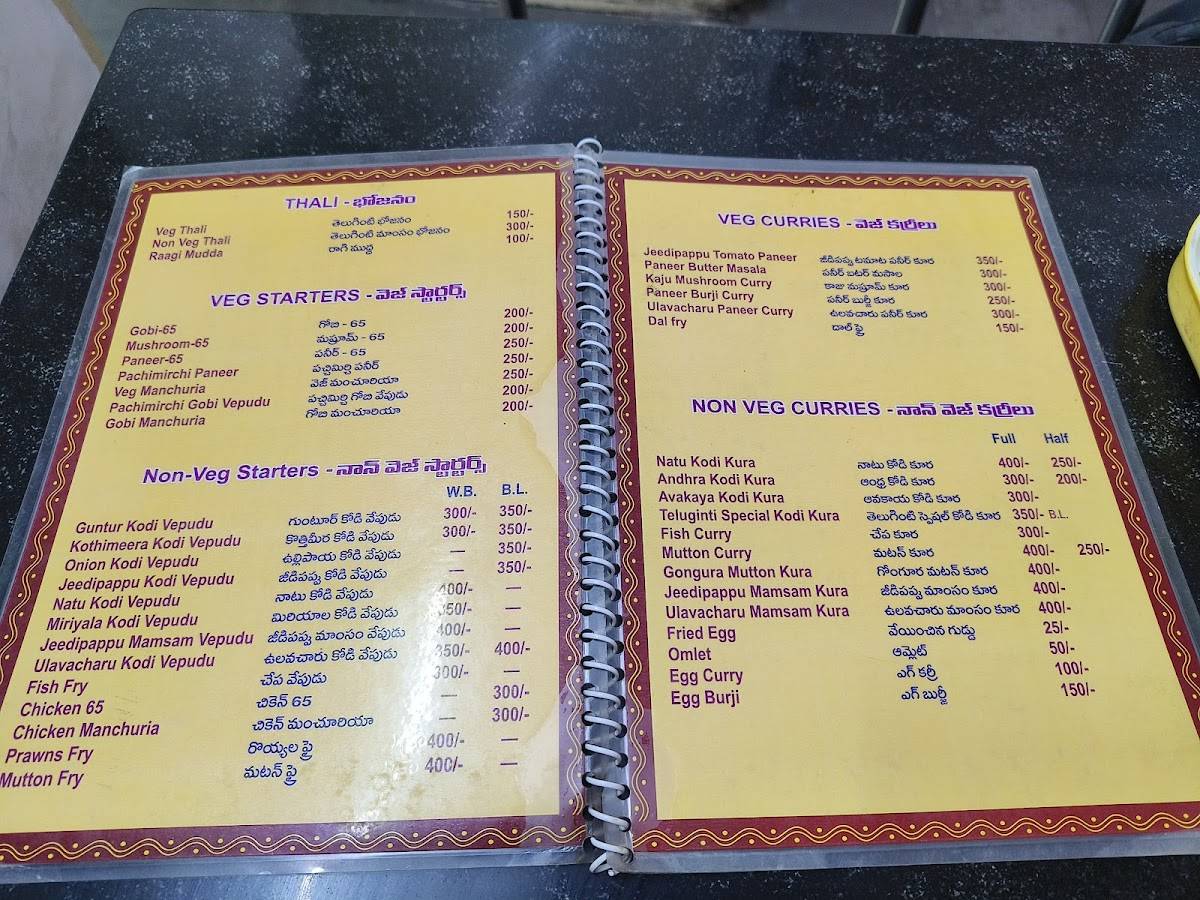 THALI - భోజనం
Veg Thali తెలుగింటి భోజనం 150/-
Non Veg Thali తెలుగింటి మాంసం భోజనం 300/-
Raagi Mudda రాగి ముద్ద 100/-
VEG STARTERS - వెజ్ స్టార్టర్స్
Gobi-65 గోబి - 65 200/-
Mushroom-65 మష్రూమ్ - 65 200/-
Paneer-65 పనీర్ - 65 250/-
Pachimirchi Paneer పచ్చిమిర్చి పనీర్ 250/-
Veg Manchuria వెజ్ మంచూరియా 250/-
Pachimirchi Gobi Vepudu పచ్చిమిర్చి గోబి వేపుడు 200/-
Gobi Manchuria గోబి మంచూరియా 200/-
Non-Veg Starters - నాన్ వెజ్ స్టార్టర్స్
W.B. B.L.
Guntur Kodi Vepudu గుంటూర్ కోడి వేపుడు 300/- 350/-
Kothimeera Kodi Vepudu కొత్తిమీర కోడి వేపుడు 300/- 350/-
Onion Kodi Vepudu ఉల్లిపాయ కోడి వేపుడు — 350/-
Jeedipappu Kodi Vepudu జీడిపప్పు కోడి వేపుడు — 350/-
Natu Kodi Vepudu నాటు కోడి వేపుడు 400/- —
Miriyala Kodi Vepudu మిరియాల కోడి వేపుడు 350/- —
Jeedipappu Mamsam Vepudu జీడిపప్పు మాంసం వేపుడు 400/- —
Ulavacharu Kodi Vepudu ఉలవచారు కోడి వేపుడు 350/- 400/-
Fish Fry చేప వేపుడు 300/- —
Chicken 65 చికెన్ 65 — 300/-
Chicken Manchuria చికెన్ మంచూరియా — 300/-
Prawns Fry రొయ్యల ఫ్రై 400/- —
Mutton Fry మటన్ ఫ్రై 400/- —
VEG CURRIES - వెజ్ కర్రీలు
Jeedipappu Tomato Paneer జీడిపప్పు టమాట పనీర్ కూర 350/-
Paneer Butter Masala పనీర్ బటర్ మసాల 300/-
Kaju Mushroom Curry కాజు మష్రూమ్ కూర 300/-
Paneer Burji Curry పనీర్ బుర్జీ కూర 250/-
Ulavacharu Paneer Curry ఉలవచారు పనీర్ కూర 300/-
Dal fry దాల్ ఫ్రై 150/-
NON VEG CURRIES - నాన్ వెజ్ కర్రీలు
Full Half
Natu Kodi Kura నాటు కోడి కూర 400/- 250/-
Andhra Kodi Kura ఆంధ్ర కోడి కూర 300/- 200/-
Avakaya Kodi Kura ఆవకాయ కోడి కూర 300/-
Teluginti Special Kodi Kura తెలుగింటి స్పెషల్ కోడి కూర 350/- B.L.
Fish Curry చేప కూర 300/-
Mutton Curry మటన్ కూర 400/- 250/-
Gongura Mutton Kura గోంగూర మటన్ కూర 400/-
Jeedipappu Mamsam Kura జీడిపప్పు మాంసం కూర 400/-
Ulavacharu Mamsam Kura ఉలవచారు మాంసం కూర 400/-
Fried Egg వేయించిన గుడ్డు 25/-
Omlet ఆమ్లెట్ 50/-
Egg Curry ఎగ్ కర్రీ 100/-
Egg Burji ఎగ్ బుర్జీ 150/-